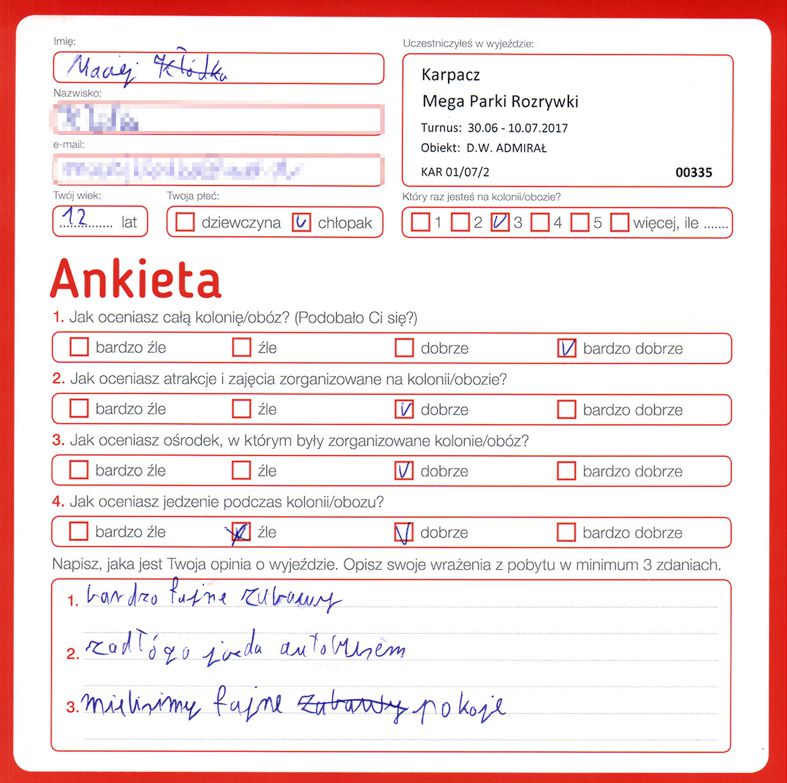 Imię:
Maciej Kłódka
Uczestniczyłeś w wyjeździe:
Karpacz
Mega Parki Rozrywki
Turnus: 30.06 - 10.07.2017
Obiekt: D.W. ADMIRAŁ
KAR 01/07/2 00335
Nazwisko:
e-mail:
Twój wiek:
12 lat
Twoja płeć:
dziewczyna chłopak
Który raz jesteś na kolonii/obozie?
1 2 3 4 5 więcej, ile .......
Ankieta
1. Jak oceniasz całą kolonię/obóz? (Podobało Ci się?)
bardzo źle źle dobrze bardzo dobrze
2. Jak oceniasz atrakcje i zajęcia zorganizowane na kolonii/obozie?
bardzo źle źle dobrze bardzo dobrze
3. Jak oceniasz ośrodek, w którym były zorganizowane kolonie/obóz?
bardzo źle źle dobrze bardzo dobrze
4. Jak oceniasz jedzenie podczas kolonii/obozu?
bardzo źle źle dobrze bardzo dobrze
Napisz, jaka jest Twoja opinia o wyjeździe. Opisz swoje wrażenia z pobytu w minimum 3 zdaniach.
1. bardzo fajne zabawy
2. zadłógo jazda autobusem
3. mieliśimy fajne zabawy pokoje